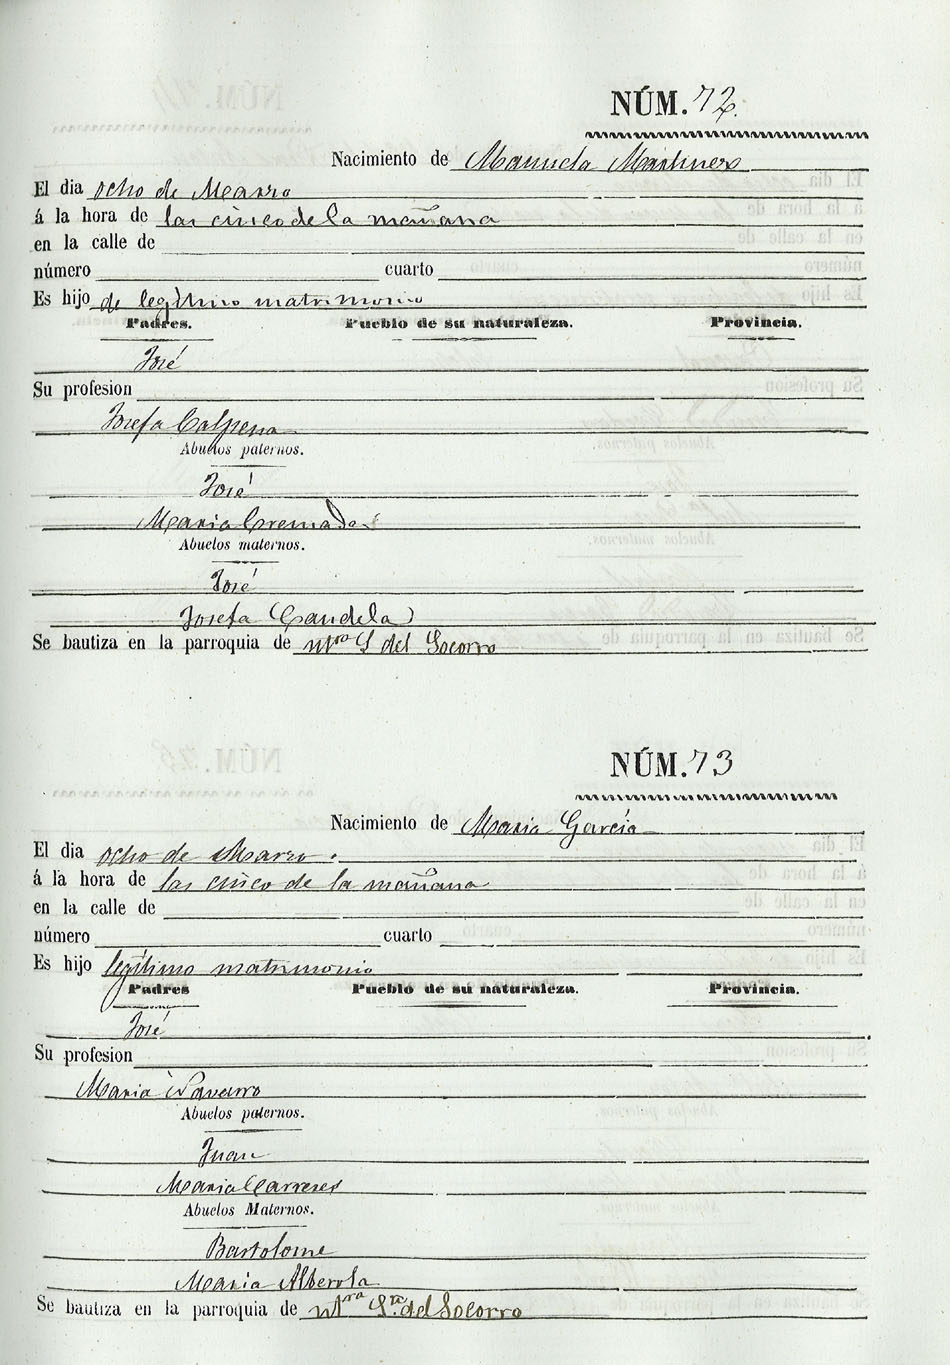 NÚM. 72.
Nacimiento de Manuela Martinez
El dia ocho de Marzo
á la hora de las cinco de la mañana
en la calle de
número cuarto
Es hijo de legitimo matrimonio
Padres. Pueblo de su naturaleza. Provincia.
José
Su profesion
Josefa Calpena
Abuelos paternos.
José
Maria Cremades
Abuelos maternos.
José
Josefa Candela
Se bautiza en la parroquia de Ntra S del Socorro
NÚM. 73
Nacimiento de Maria Garcia
El dia ocho de Marzo.
á la hora de las cinco de la mañana
en la calle de
número cuarto
Es hijo legítimo matrimonio
Padres Pueblo de su naturaleza. Provincia.
José
Su profesion
Maria Navarro
Abuelos paternos.
Juan
Maria Carreres
Abuelos Maternos.
Bartolome
Maria Alberola
Se bautiza en la parroquia de Ntra Sra del Socorro